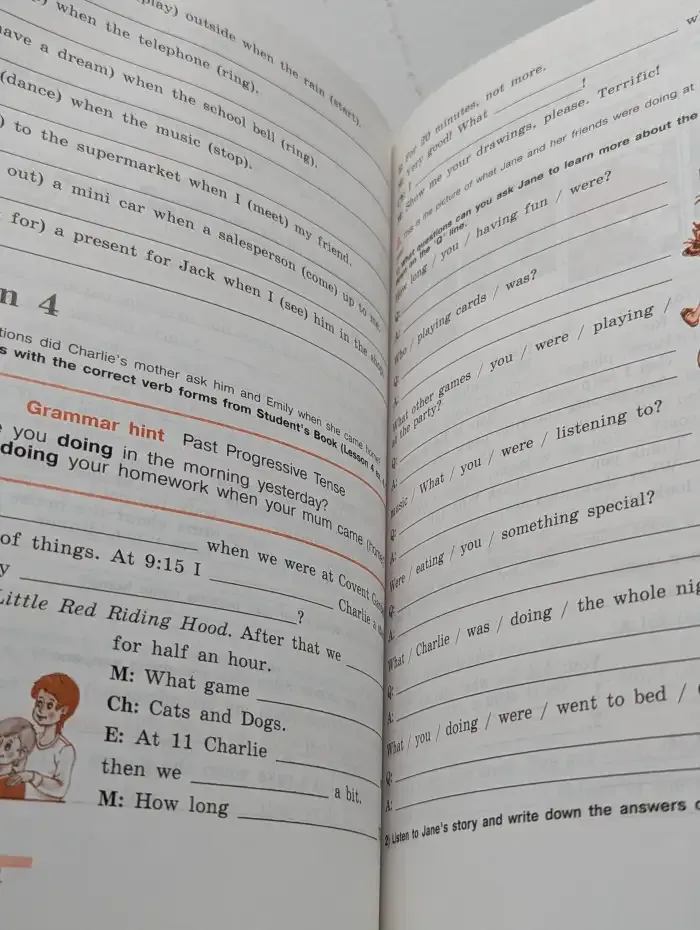 when the telephone (ring).
play) outside when the rain (start).
ave a dream) when the school bell (ring).
(dance) when the music (stop).
) to the supermarket when I (meet) my friend.
out) a mini car when a salesperson (come) up to me.
for) a present for Jack when I (see) him in the shop.
n 4
tions did Charlie's mother ask him and Emily when she came home?
s with the correct verb forms from Student's Book (Lesson 4
Grammar hint Past Progressive Tense
you doing in the morning yesterday?
doing your homework when your mum came (home
when we were at Covent
of things. At 9:15 I
Charlie
y ?
Little Red Riding Hood. After that we
for half an hour.
M: What game
Ch: Cats and Dogs.
E: At 11 Charlie
then we a bit.
M: How long
w
For 20 minutes, not more.
Very good! What !
Show me your drawings, please. Terrific!
This is the picture of what Jane and her friends were doing at
What questions can you ask Jane to learn more about the
on the "Q" line.
How long / you / having fun / were?
Q:
A:
Who / playing cards / was?
Q:
A:
What other games / you / were / playing /
at the party?
Q:
A:
music / What / you / were / listening to?
Q:
A:
Were / eating / you / something special?
Q:
A:
What / Charlie / was / doing / the whole nig
Q:
A:
What / you / doing / were / went to bed /
Q:
A:
2) Listen to Jane's story and write down the answers